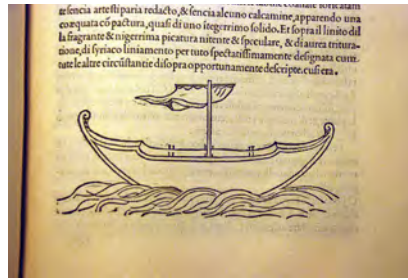 te sencia arte stiparia redacto, & sencia alcuno calcamine, apparendo una
coæquata cõpactura, quasi di uno itegerrimo solido. Et sopra il linito dil
la fragrante & nigerrima picatura nitente & speculare, & di aurea tritura-
tione, di syriaco liniamento per tuto spectatissimamente designata cum.
tute le altre circũstantie disopra opportunamente descripte. cusi era.